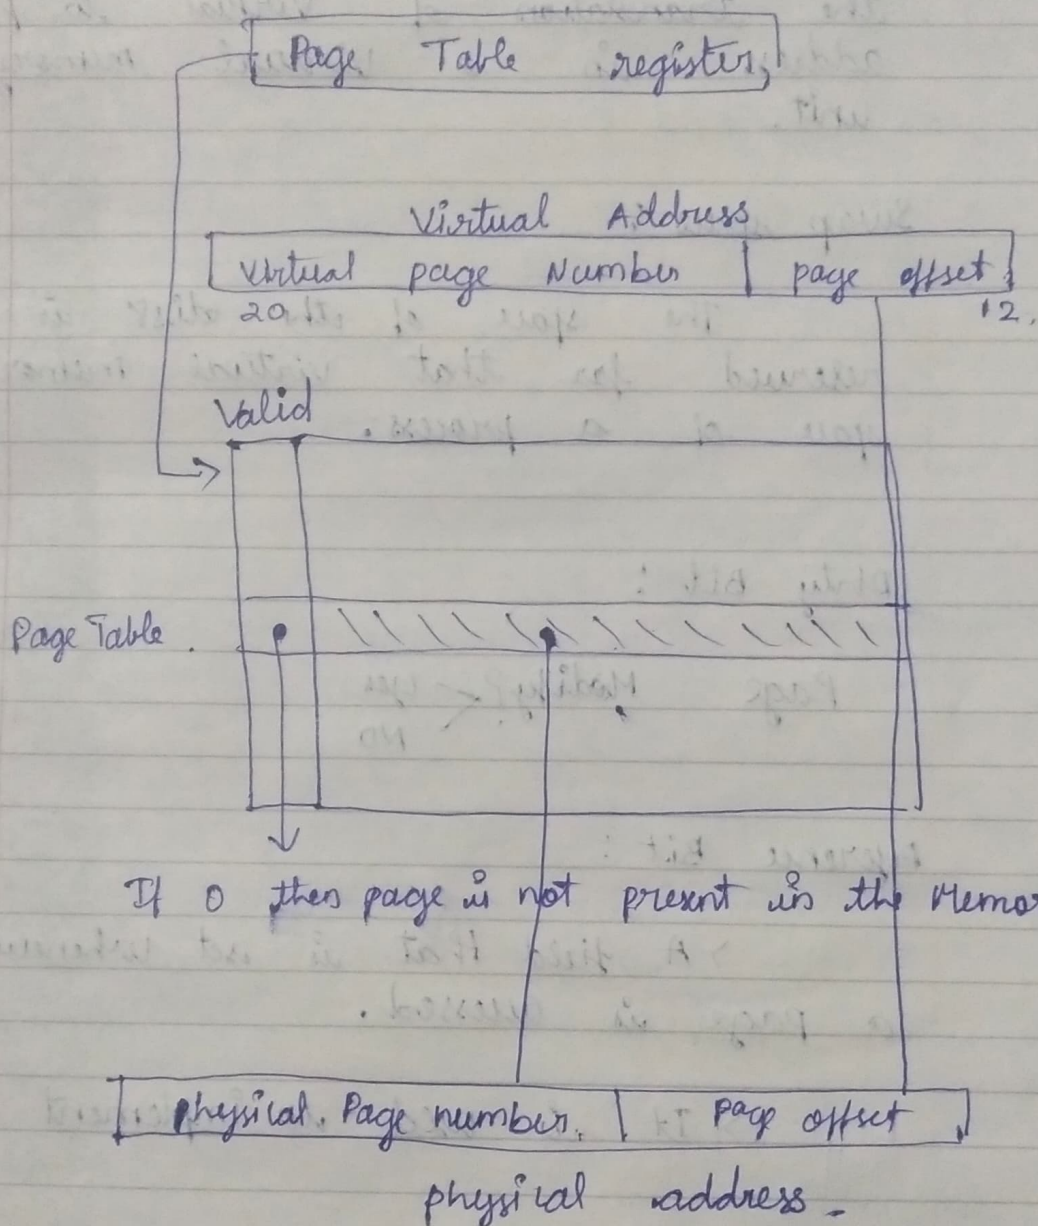 Page Table register,
Virtual Address
Virtual page Number page offset
20 12.
Valid
Page Table.
If 0 then page is not present in the Memo
physical. Page number. Page offset
physical address.